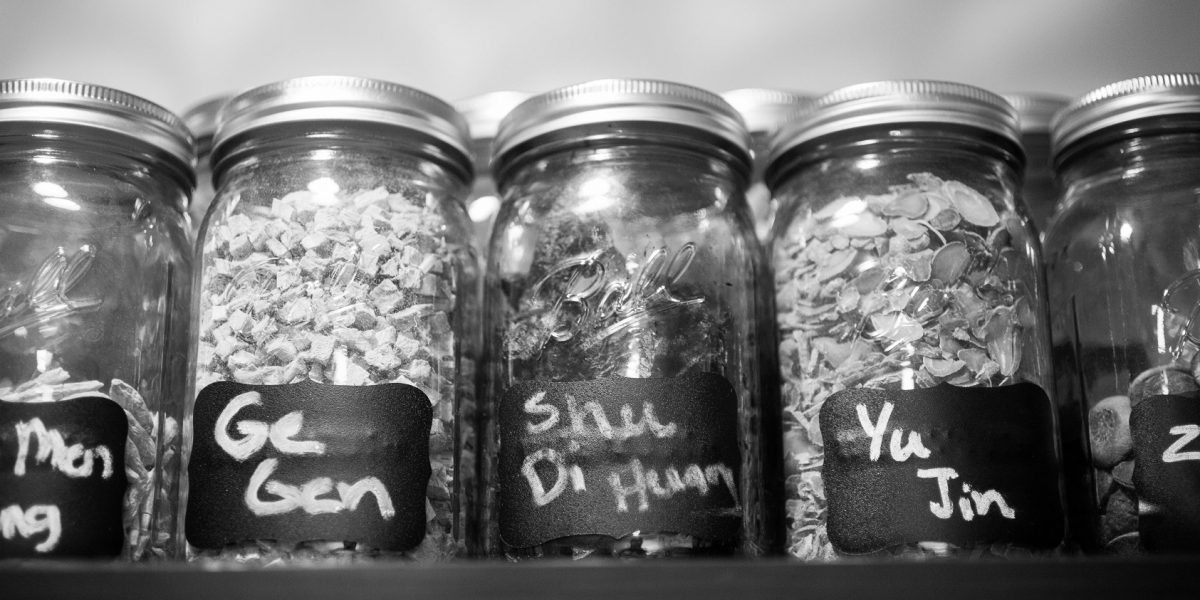 Men
ng
Ge
Gen
Ball
Shu
Di Huang
Yu
Jin
Z